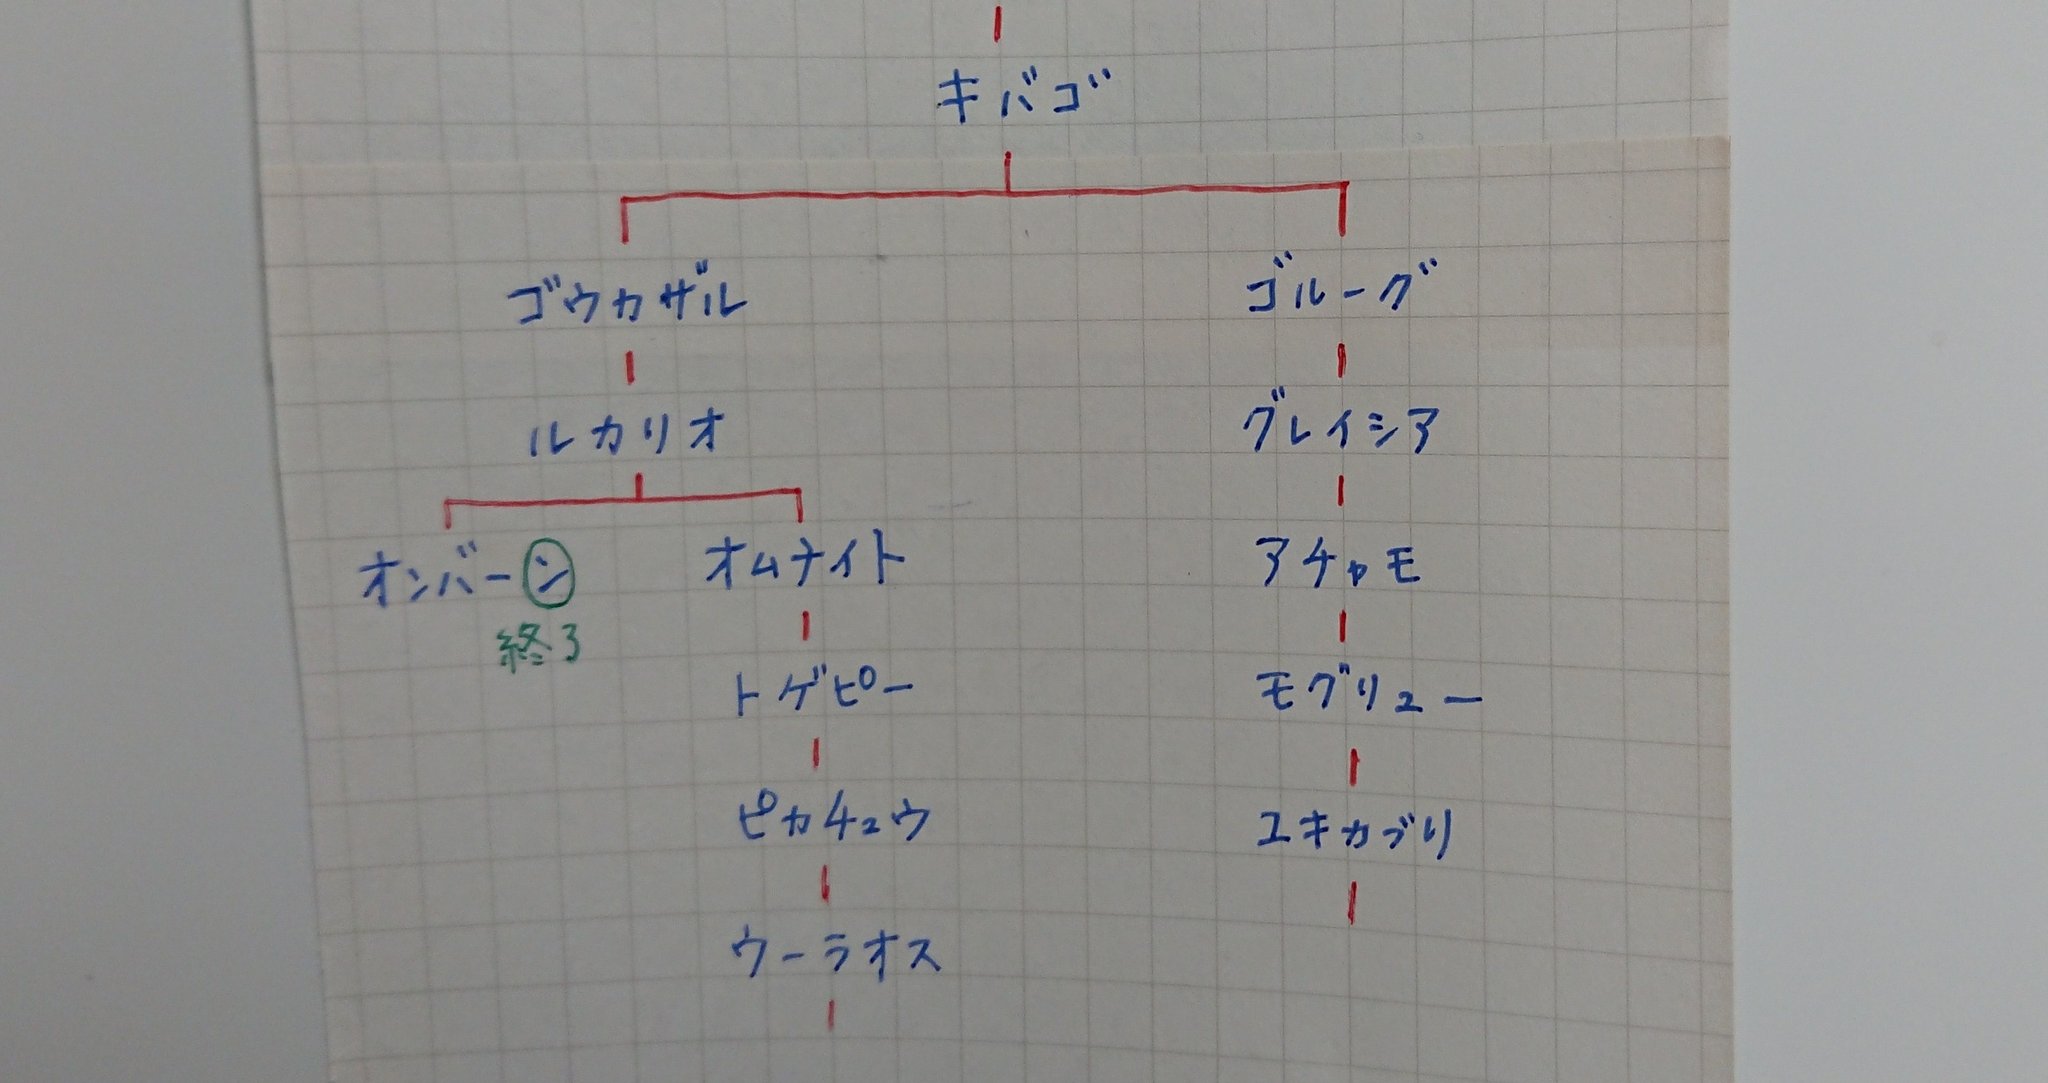 キバゴ
ゴウカザル
ゴルーグ
ルカリオ
グレイシア
オンバーン
オムナイト
アチャモ
終了
トゲピー
モグリュー
ピカチュウ
ユキカブリ
ウーラオス